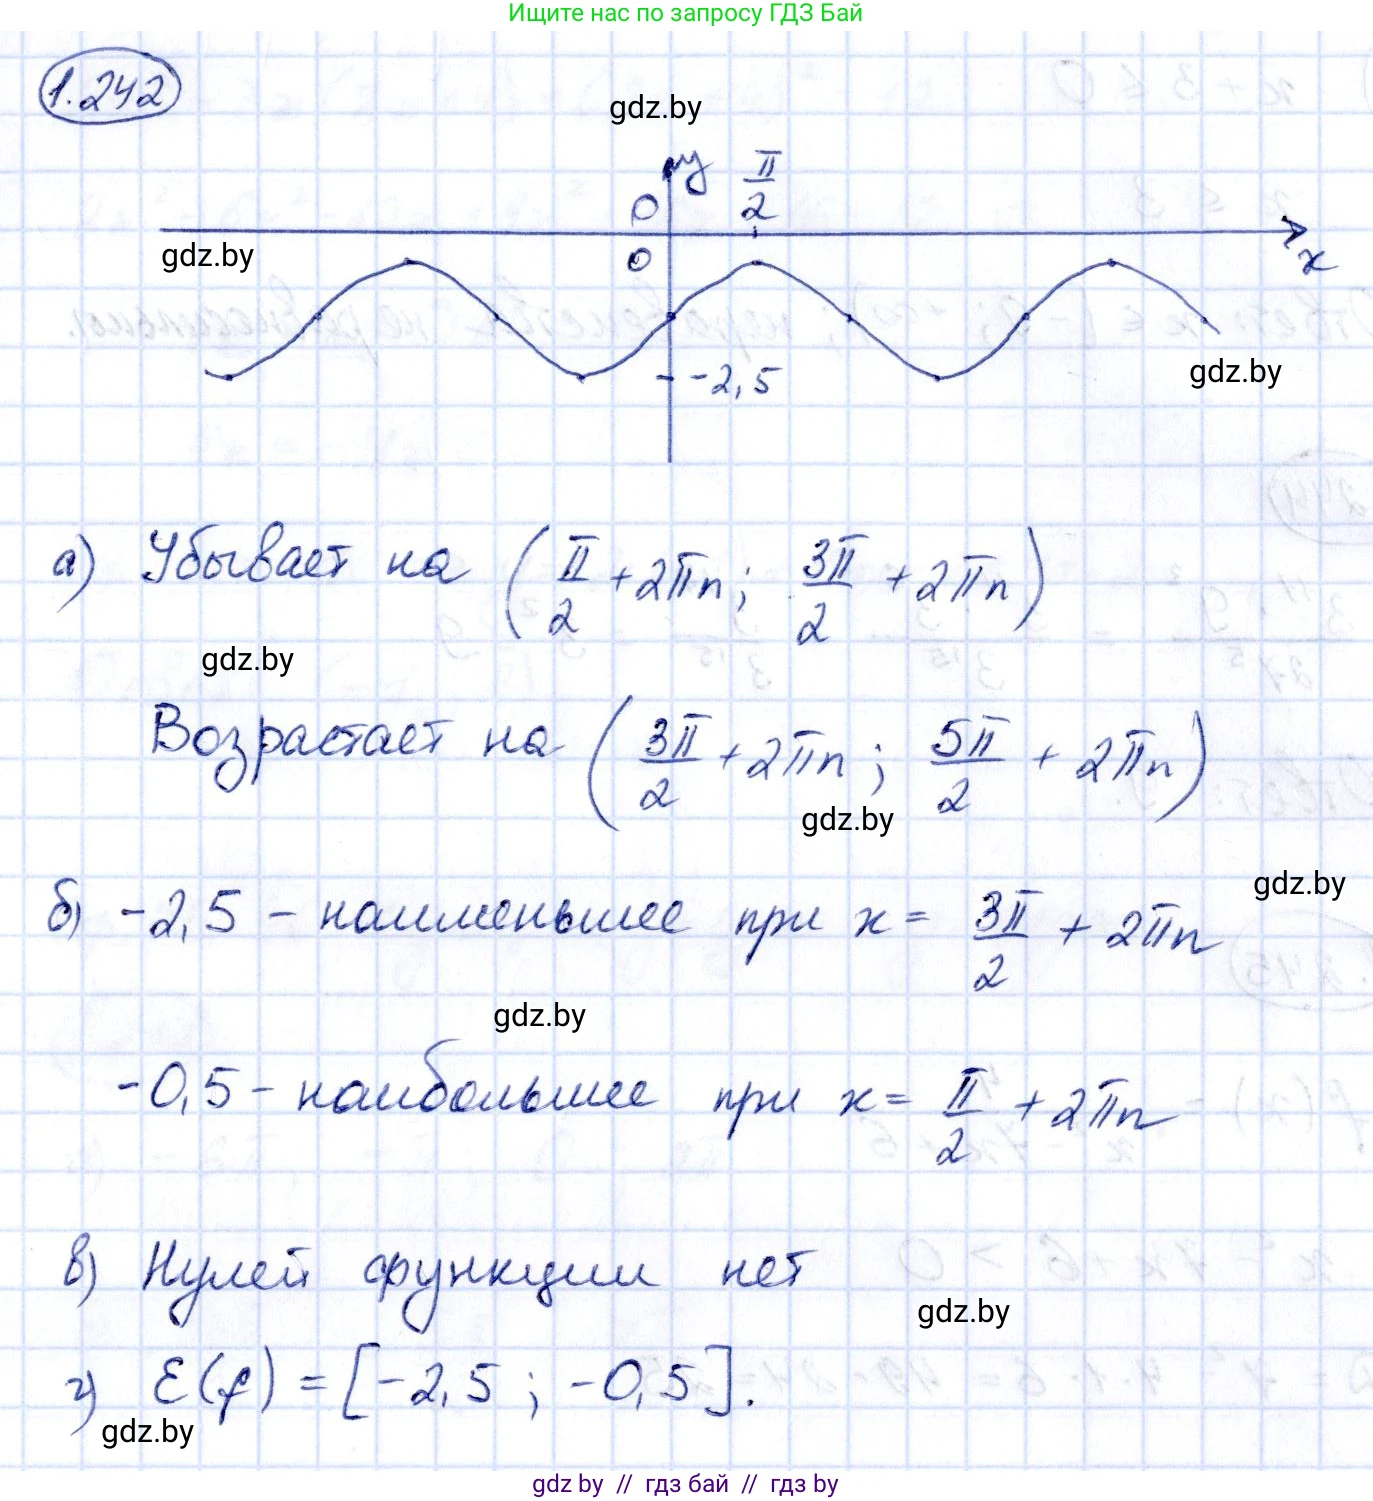 Ищите нас по запросу ГДЗ Бай
1.242
gdz.by
y π/2
0
gdz.by
0
x
gdz.by
-2,5
а) Убывает на (π/2 + 2πn; 3π/2 + 2πn)
gdz.by
Возрастает на (3π/2 + 2πn; 5π/2 + 2πn)
gdz.by
gdz.by
б) -2,5 - наименьшее при x = 3π/2 + 2πn
gdz.by
-0,5 - наибольшее при x = π/2 + 2πn
в) Нулей функции нет
gdz.by
г) E(f) = [-2,5; -0,5].
gdz.by
gdz by // гдз бай // гдз by